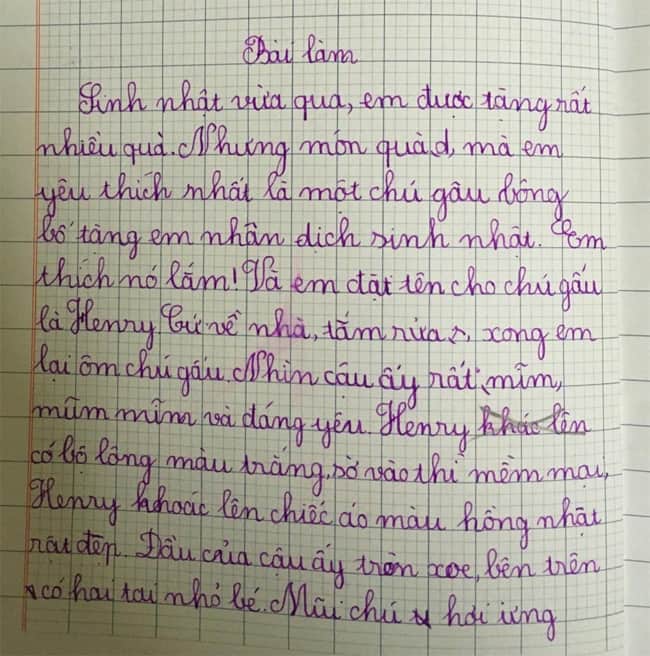 Bài làm
Sinh nhật vừa qua, em được tặng rất
nhiều quà. Nhưng món quà, mà em
yêu thích nhất là một chú gấu bông
bố tặng em nhân dịch sinh nhật. Em
thích nó lắm! Và em đặt tên cho chú gấu
là Henry Cứ về nhà, tắm rửa, xong em
lại ôm chú gấu. Nhìn cậu ấy rất mĩm,
mũm mĩm và dáng yêu. Henry khác lên
có bộ lông màu trắng, sờ vào thì mềm mai,
Henry khoác lên chiếc áo màu hồng nhạt
rất đẹp. Đầu của cậu ấy tròn xoe, bên trên
có hai tai nhỏ bé. Mũi chú hơi ửng